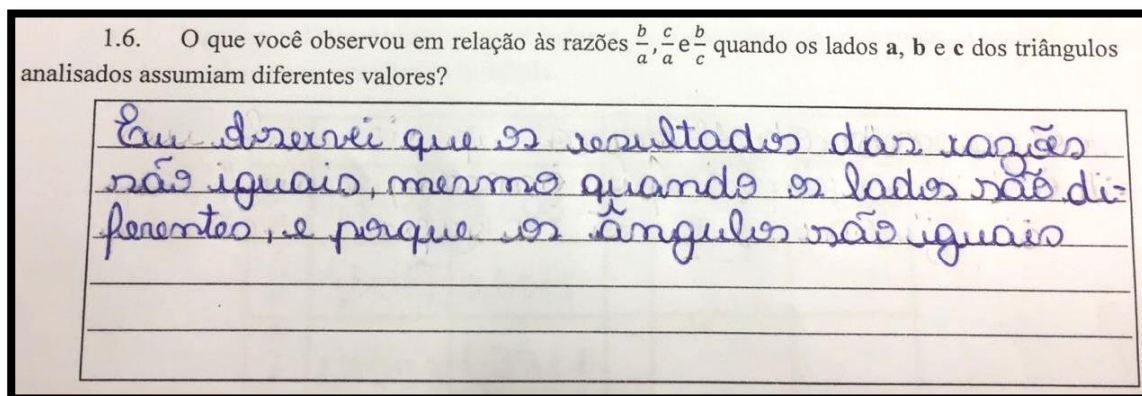 1.6. O que você observou em relação às razões b/a, c/a e b/c quando os lados a, b e c dos triângulos
analisados assumiam diferentes valores?
Eu observei que os resultados das razões
são iguais, mesmo quando os lados são di-
ferentes, e porque os ângulos são iguais